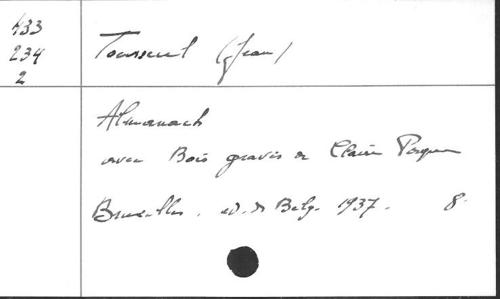 433
234
2
Tousseul (Jean)
Almanach
avec Bois gravés de Claire Pasquier
Bruxelles. ed. de Belg. 1937. 8.